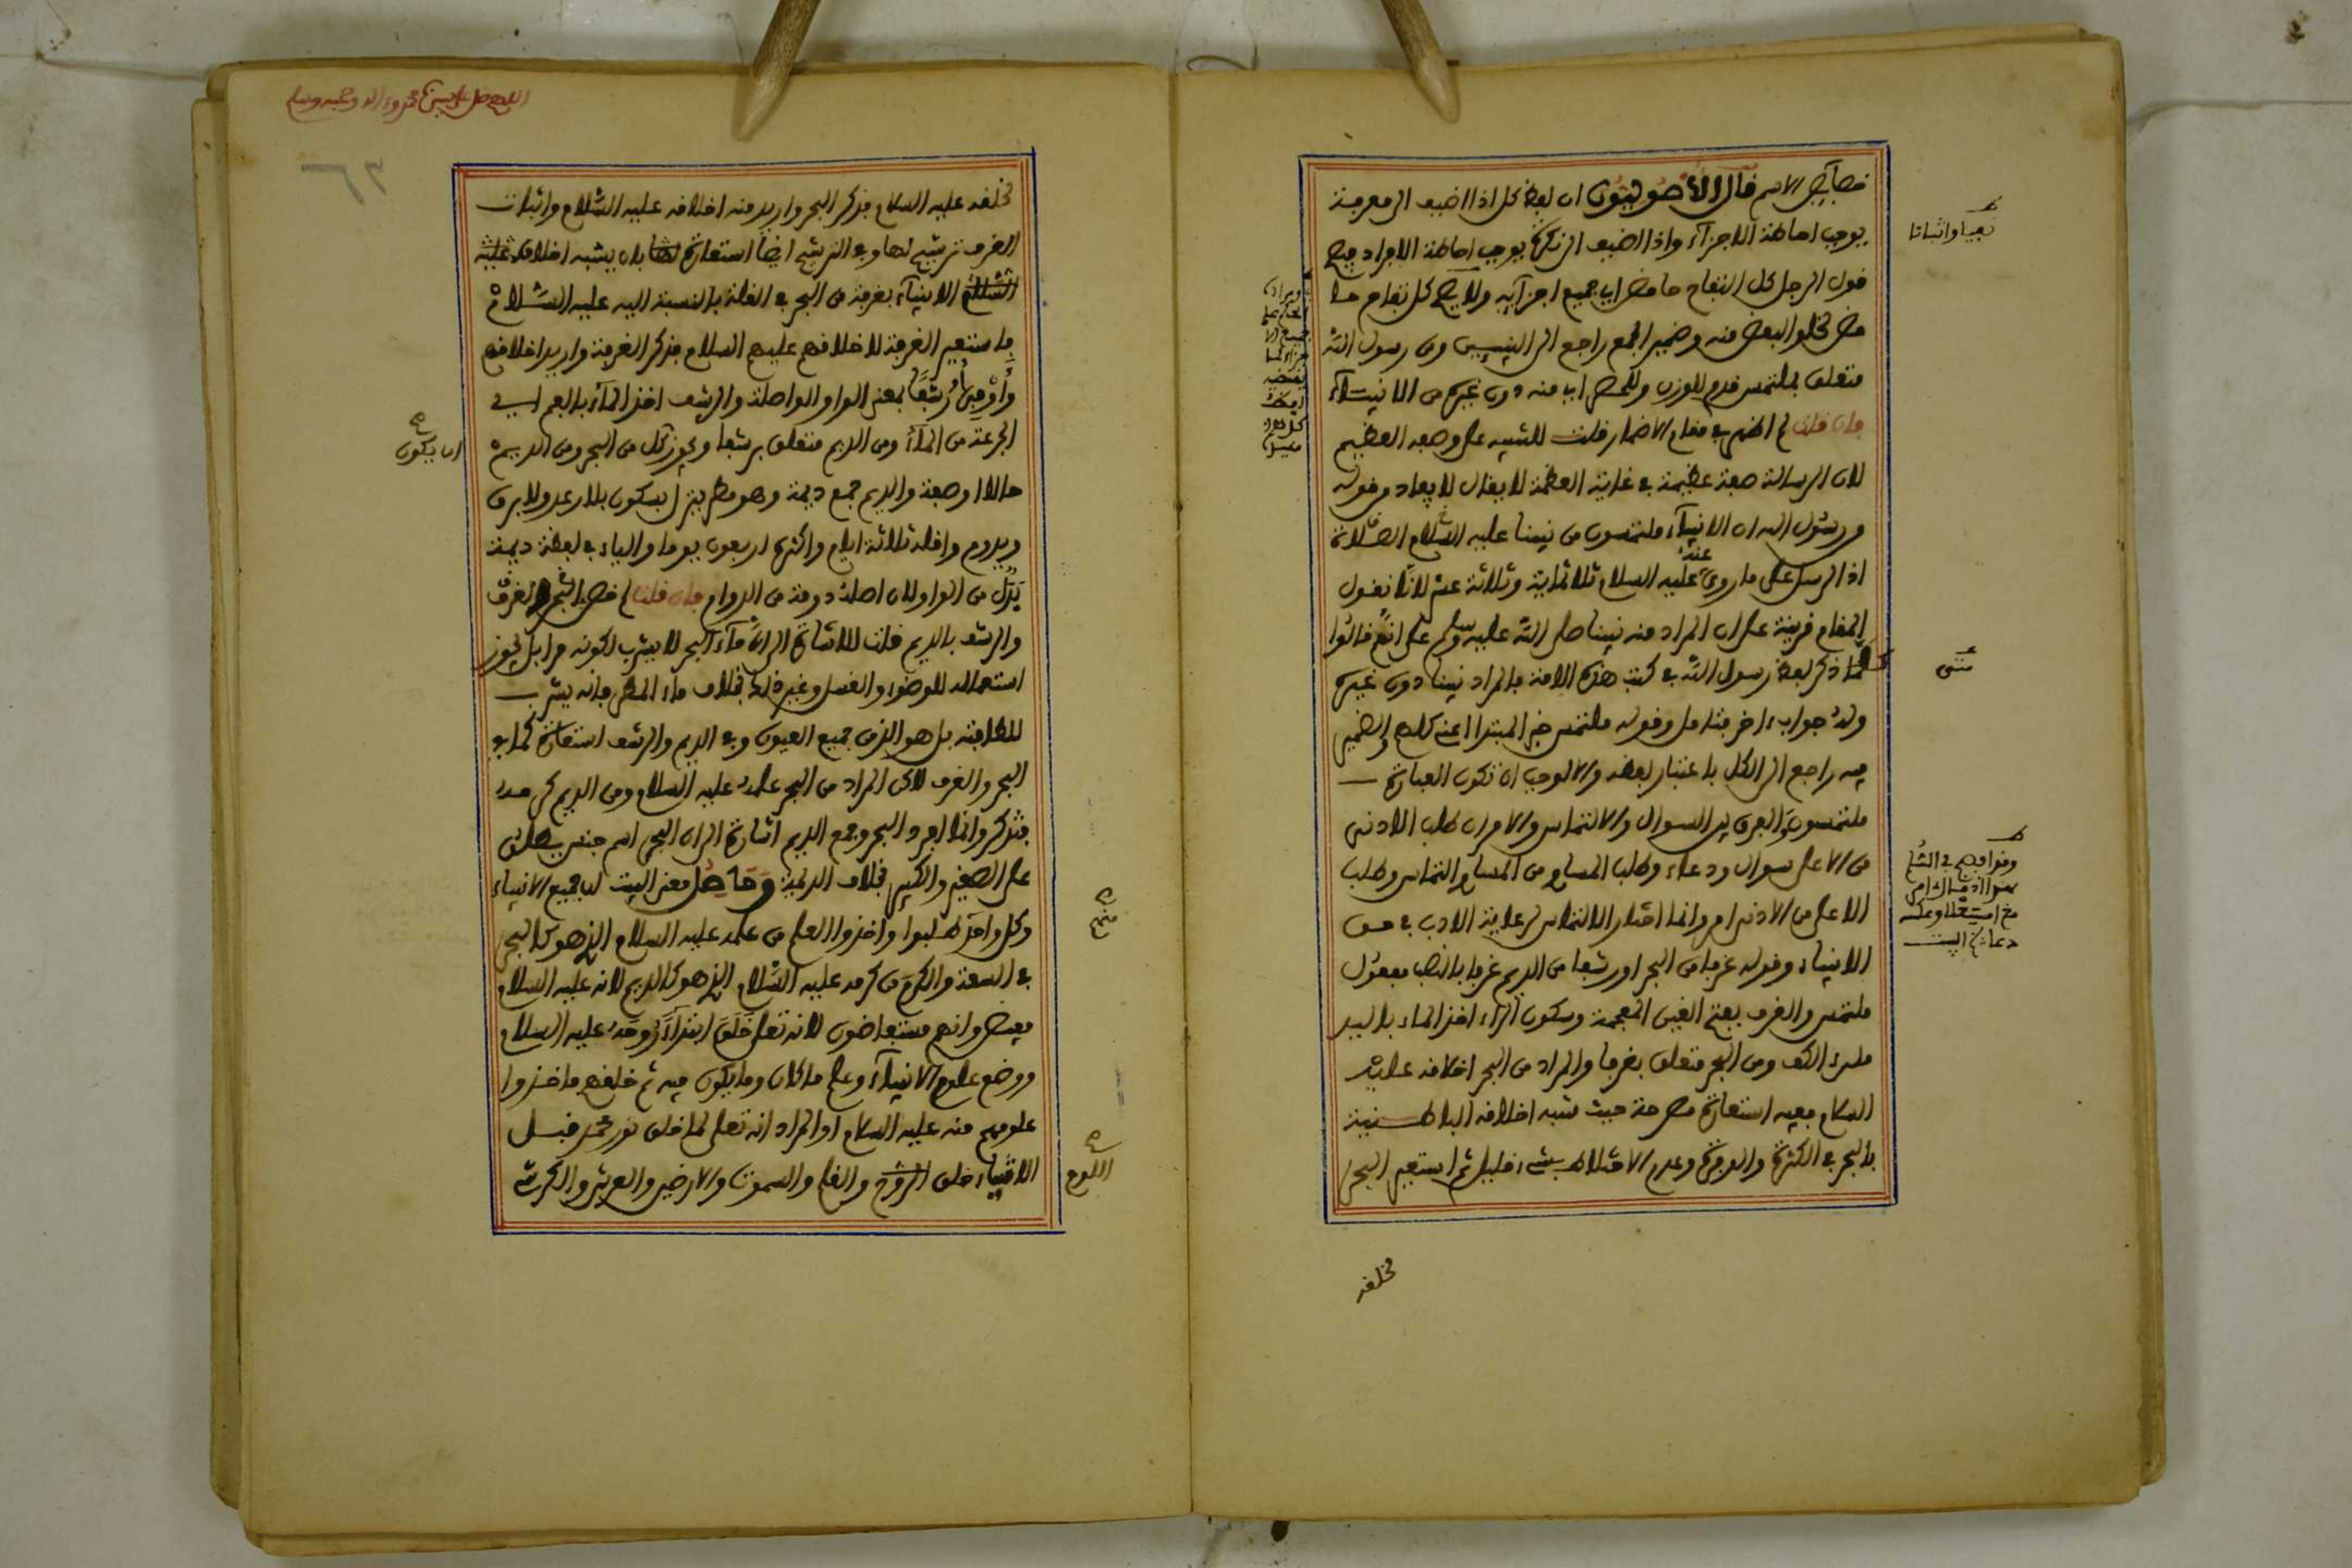 خصائص الاسم قال الأصوليون ان لفظ كل اذا اضيف الى معرفة
يوجب احاطة الاجزاء واذا اضيف الى نكرة يوجب احاطة الافراد فيصح
قول الرجل كل التفاح حامض اي جميع اجزايه ولا يصح كل تفاح حا
مض لخلو البعض منه وضمير الجمع راجع الى النبيين ومن رسول الله
متعلق بملتمس قدم للوزن وللحصر اي منه دون غيره من الانبياء
فان قلت لم اظهر في مقام الاضمار قلت للتنبيه على وصفه العظيم
لان الرسالة صفة عظيمة في غاية العظمة لا يقال لا يفاد من قوله
من رسول الله ان الانبياء ملتمسون من نبينا عليه السلام الصلاة
اذ الرسل على ما روي عنه عليه السلام ثلاثماية وثلاثة عشر لانا نقول
المقام قرينة على ان المراد منه نبينا صلى الله عليه وسلم على انهم قالوا
كلما ذكر لفظ رسول الله في كتب هذه الامة فالمراد نبينا دون غيره
وله جواب اخر وقوله ملتمس خبر المبتدا اعني كلهم والضمير
فيه راجع الى الكل باعتبار لفظه والا لوجب ان تكون العبارة
ملتمسون والفرق بين السوال والالتماس والامر ان طلب الادنى
من الاعلى سوال ودعاء وطلب المساوي من المساوي التماس وطلب
الاعلى من الادنى امر وانما اختار الالتماس لرعاية الادب في حق
الانبياء وقوله غرفا من البحر او رشفا من الديم غرفا بالنصب مفعول
ملتمس والغرف بفتح الغين المعجمة وسكون الراء اخذ الماء باليد
ملء الكف ومن البحر متعلق بغرفا والمراد من البحر اخلاقه عليه
السلام ففيه استعارة مصرحة حيث شبه اخلاقه الباطنية
بالبحر في الكثرة وعدم الاختلاط بشيء قليل ثم استعير البحر
نفيا واثباتا
متنى
مخلقه
اللهم صل على سيدنا محمد وءاله وصحبه وسلم
٦٣
لخلقه عليه السلام فذكر البحر واريد منه اخلاقه عليه السلام واثبات
الغرف ترشيح لها وفي الترشيح ايضا استعارة بان يشبه اخلاق عليه
السلام الانبياء بغرفة من البحر في القلة بالنسبة اليه عليه السلام
فاستعير الغرفة لاخلاقهم عليهم السلام فذكر الغرفة واريد اخلاقهم
وأو في أو رشفا بمعنى الواو الواصلة والرشف اخذ الماء بالفم اي
الجرعة من الماء ومن الديم متعلق برشفا ويجوز كل من البحر ومن الديم
حالا او صفة والديم جمع ديمة وهو مطر ينزل بسكون بلا رعد ولا برق
ويدوم واقله ثلاثة ايام واكثره اربعون يوما والياء في لفظة ديمة
بدل من الواو لان اصله دومة من الدوام فان قلت لم خص البحر بالغرف
والرشف بالديم قلت للاشارة الى ان ماء البحر لا يشرب لكونه مرا بل يجوز
استعماله للوضوء والغسل وغير ذلك بخلاف ماء المطر فانه يشرب
للطافته بل هو الذي جميع العيون وفي الديم والرشف استعارة كما في
البحر والغرف لاكن المراد من البحر علمه عليه السلام ومن الديم كرمه
فتذكر وانما افرد البحر وجمع الديم اشارة الى ان البحر اسم جنس يطلق
على الصغير والكبير بخلاف الديمة وحاصل معنى البيت ان جميع الانبياء
وكل واحد طلبوا واخذوا العلم من علمه عليه السلام الذي هو كالبحر
في السعة والكرم من كرمه عليه السلام الذي هو كالديم لانه عليه السلام
مفيض وانهم مستفاضون لانه تعلى خلق ابتداء روحه عليه السلام
ووضع علوم الانبياء وعلم ما كان وما يكون فيه ثم خلقهم فاخذوا
علومهم منه عليه السلام او المراد انه تعلى لما خلق نور محمد قبل
الاشياء خلق الروح والقلم والسموت والارضين والعرش والكرسي
ان يكون
منهم
اللوح